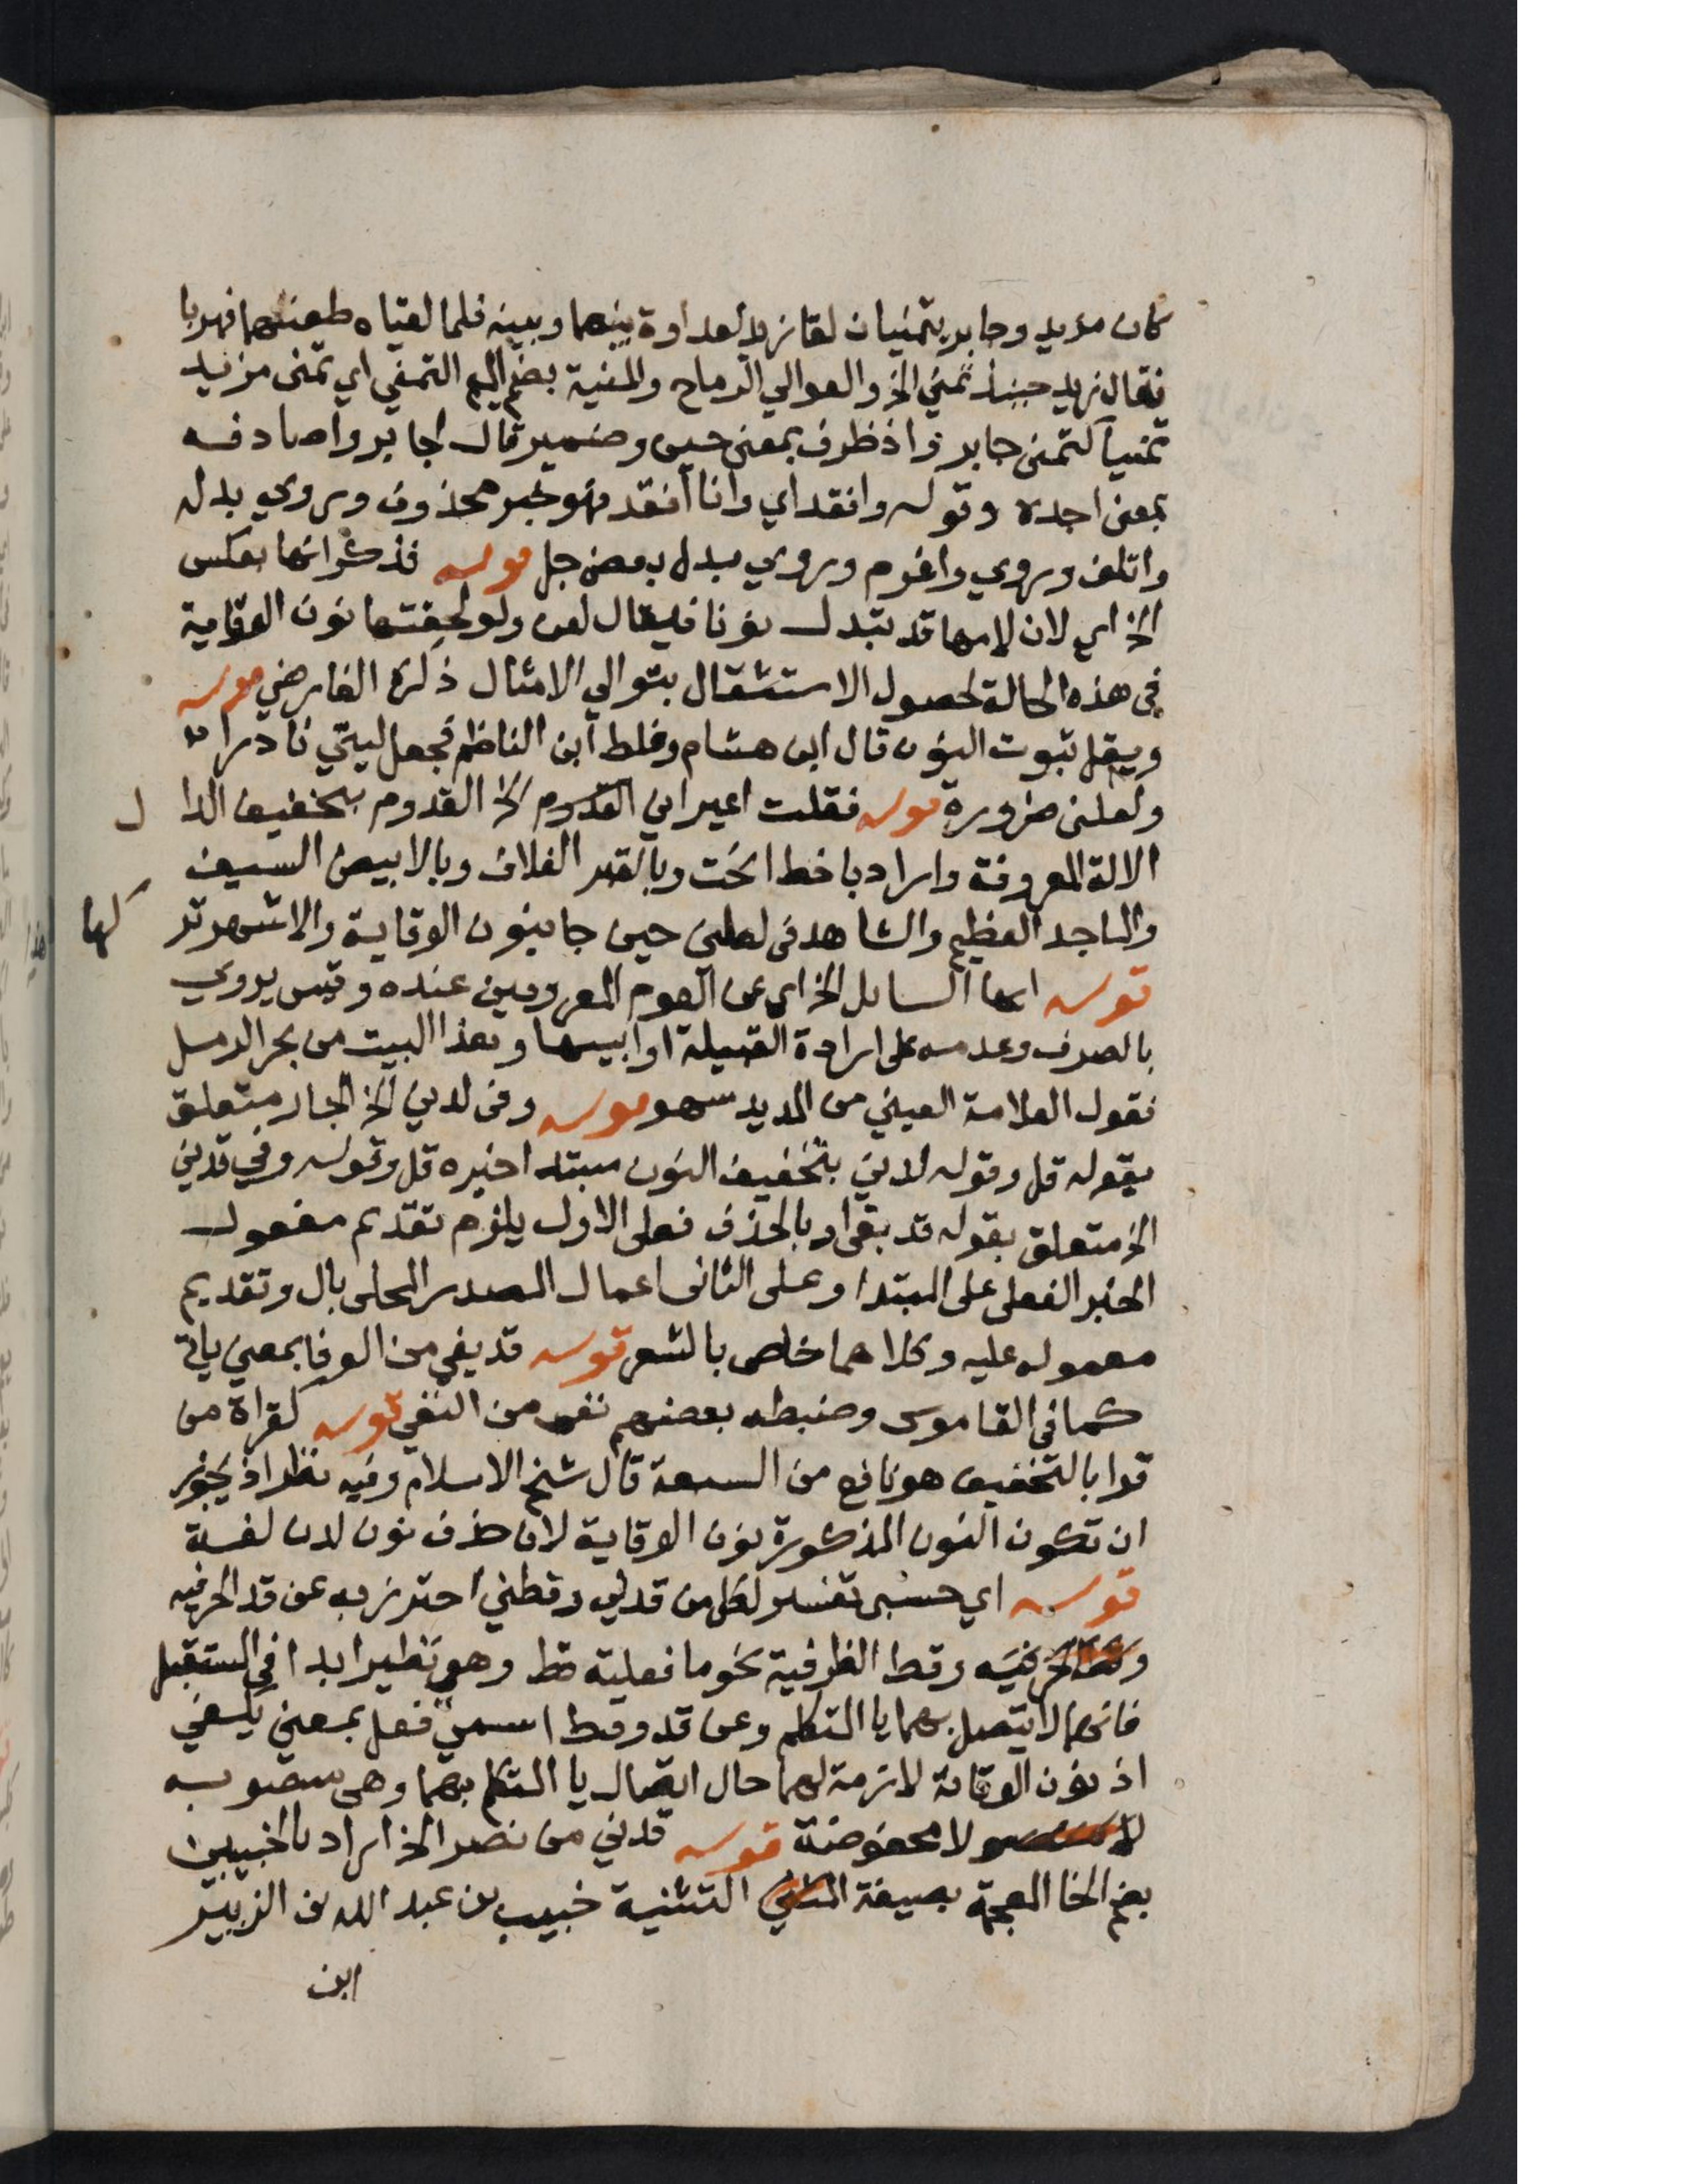 كان مزيد وجابر يتمنيان لقا زيد لعداوة بينهما وبينه فلما لقياه طعنهما فهربا
فقال زيد حينئذ تمنى الخ والعوالي الرماح والمنية بضم الميم التمني اي تمنى مزيد
تمنيا كتمنى جابر واذ ظرف بمعنى حين وضمير قال لجابر واصادفه
بمعنى اجده وقوله وافقد اي وانا افقد فهو خبر محذوف ويروي بدله
واتلف ويروي واغرم ويروي بدل بعض جل قوله فذكر انها بعكس
الخ اي لان لامها قد تبدل نونا فيقال لعن ولو لحقتها نون الوقاية
في هذه الحالة لحصول الاستثقال بتوالي الامثال ذكره الفارضي قوله
ويقل ثبوت النون قال ابن هشام وغلط ابن الناظم فجعل ليتي نادرا
ولعلني ضرورة قوله فقلت اعيراني القدوم الخ القدوم بتخفيف الدال
الالة المعروفة واراد باخط انحت وبالقبر الغلاف وبالابيض السيف
والماجد العظيم والشاهد في لعلني حين جا بنون الوقاية والاشهر تركها
قوله ايها السايل الخ اي عن القوم المعروفين عنده وقيس يروي
بالصرف وعدمه على ارادة القبيلة او ابيها وهذا البيت من بحر الرمل
فقول العلامة العيني من المديد سهو قوله وفي لدني الخ الجار متعلق
بقوله قل وقوله لدني بتخفيف النون مبتدا خبره قل وقوله وفي قدني
الخ متعلق بقوله قد يفي او بالحذف فعلى الاول يلزم تقديم معمول
الخبر الفعلى على المبتدا وعلى الثانى اعمال المصدر المحلى بال وتقديم
معموله عليه وكلاهما خاص بالشعر قوله قد يفي من الوفا بمعنى ياتي
كما في القاموس وضبطه بعضهم نفي من النفي قوله كقراة من
قرا بالتخفيف هو نافع من السبعة قال شيخ الاسلام وفيه نظر اذ يجوز
ان تكون النون المذكورة نون الوقاية لان حذف نون لدن لغة
قوله اي حسبي تفسير لكل من قدني وقطني احترز به عن قد الحرفيه
وقط الظرفية نحو ما فعلته قط وهو نظير ابدا في المستقبل
فانهما لا يتصل بهما يا المتكلم وعن قد وقط اسمي فعل بمعنى يكفي
اذ نون الوقاية لازمة لهما حال اتصال يا المتكلم بهما وهي منصوبه
لا مخفوضة قوله قدني من نصر الخ اراد بالخبيبين
بضم الخا المعجمة بصيغة التثنية خبيب بن عبد الله بن الزبير
ابن